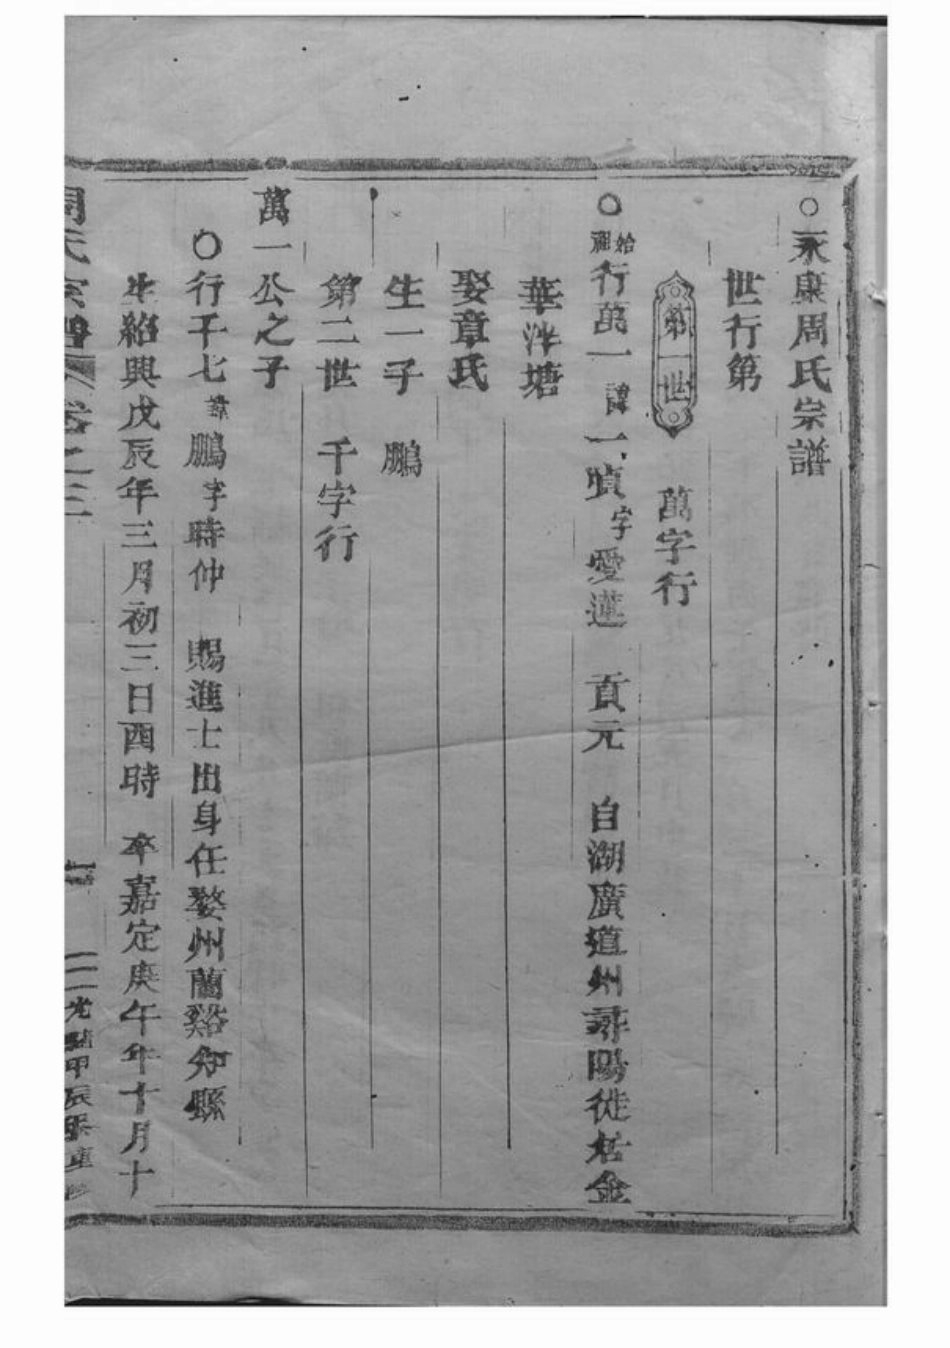 ○永康周氏宗譜
世行第
第一世 萬字行
○始祖行萬一諱一貞字愛蓮 貢元 自湖廣道州潯陽徙居金
華泮塘
娶章氏
生一子 鵬
第二世 千字行
萬一公之子
○行千七諱鵬字時仲 賜進士出身任婺州蘭谿知縣
生紹興戊辰年三月初三日酉時 卒嘉定庚午年十月十
周氏宗譜 卷之三 二 光緒甲辰重